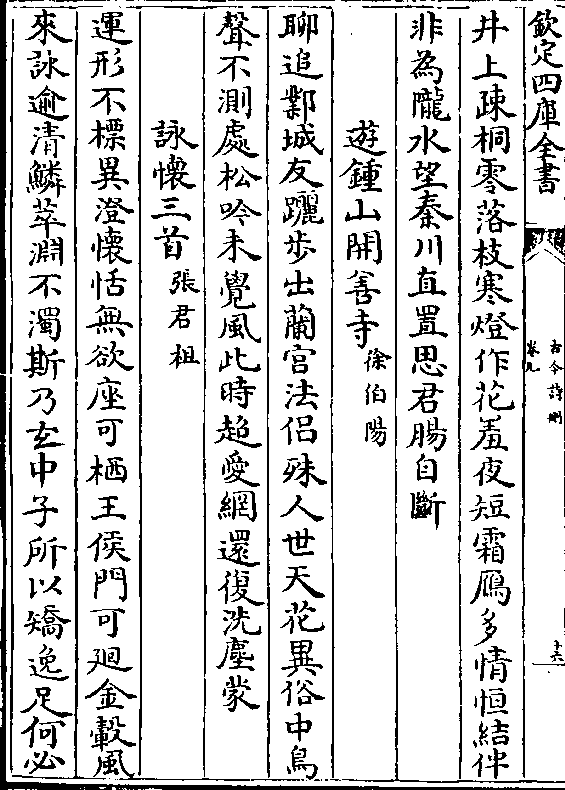 欽定四庫全書
古今詩刪
卷九
十六
井上疎桐零落枝寒燈作花羞夜短霜鴈多情恒結伴
非為隴水望秦川直置思君腸自斷
遊鍾山開善寺徐伯陽
聊追鄴城友躧步出蘭宫法侣殊人世天花異俗中鳥
聲不測處松吟未覺風此時超愛網還復洗塵蒙
詠懷三首張君祖
運形不標異澄懷恬無欲座可栖王侯門可廻金轂風
來詠逾清鱗萃淵不濁斯乃𤣥中子所以矯逸足何必